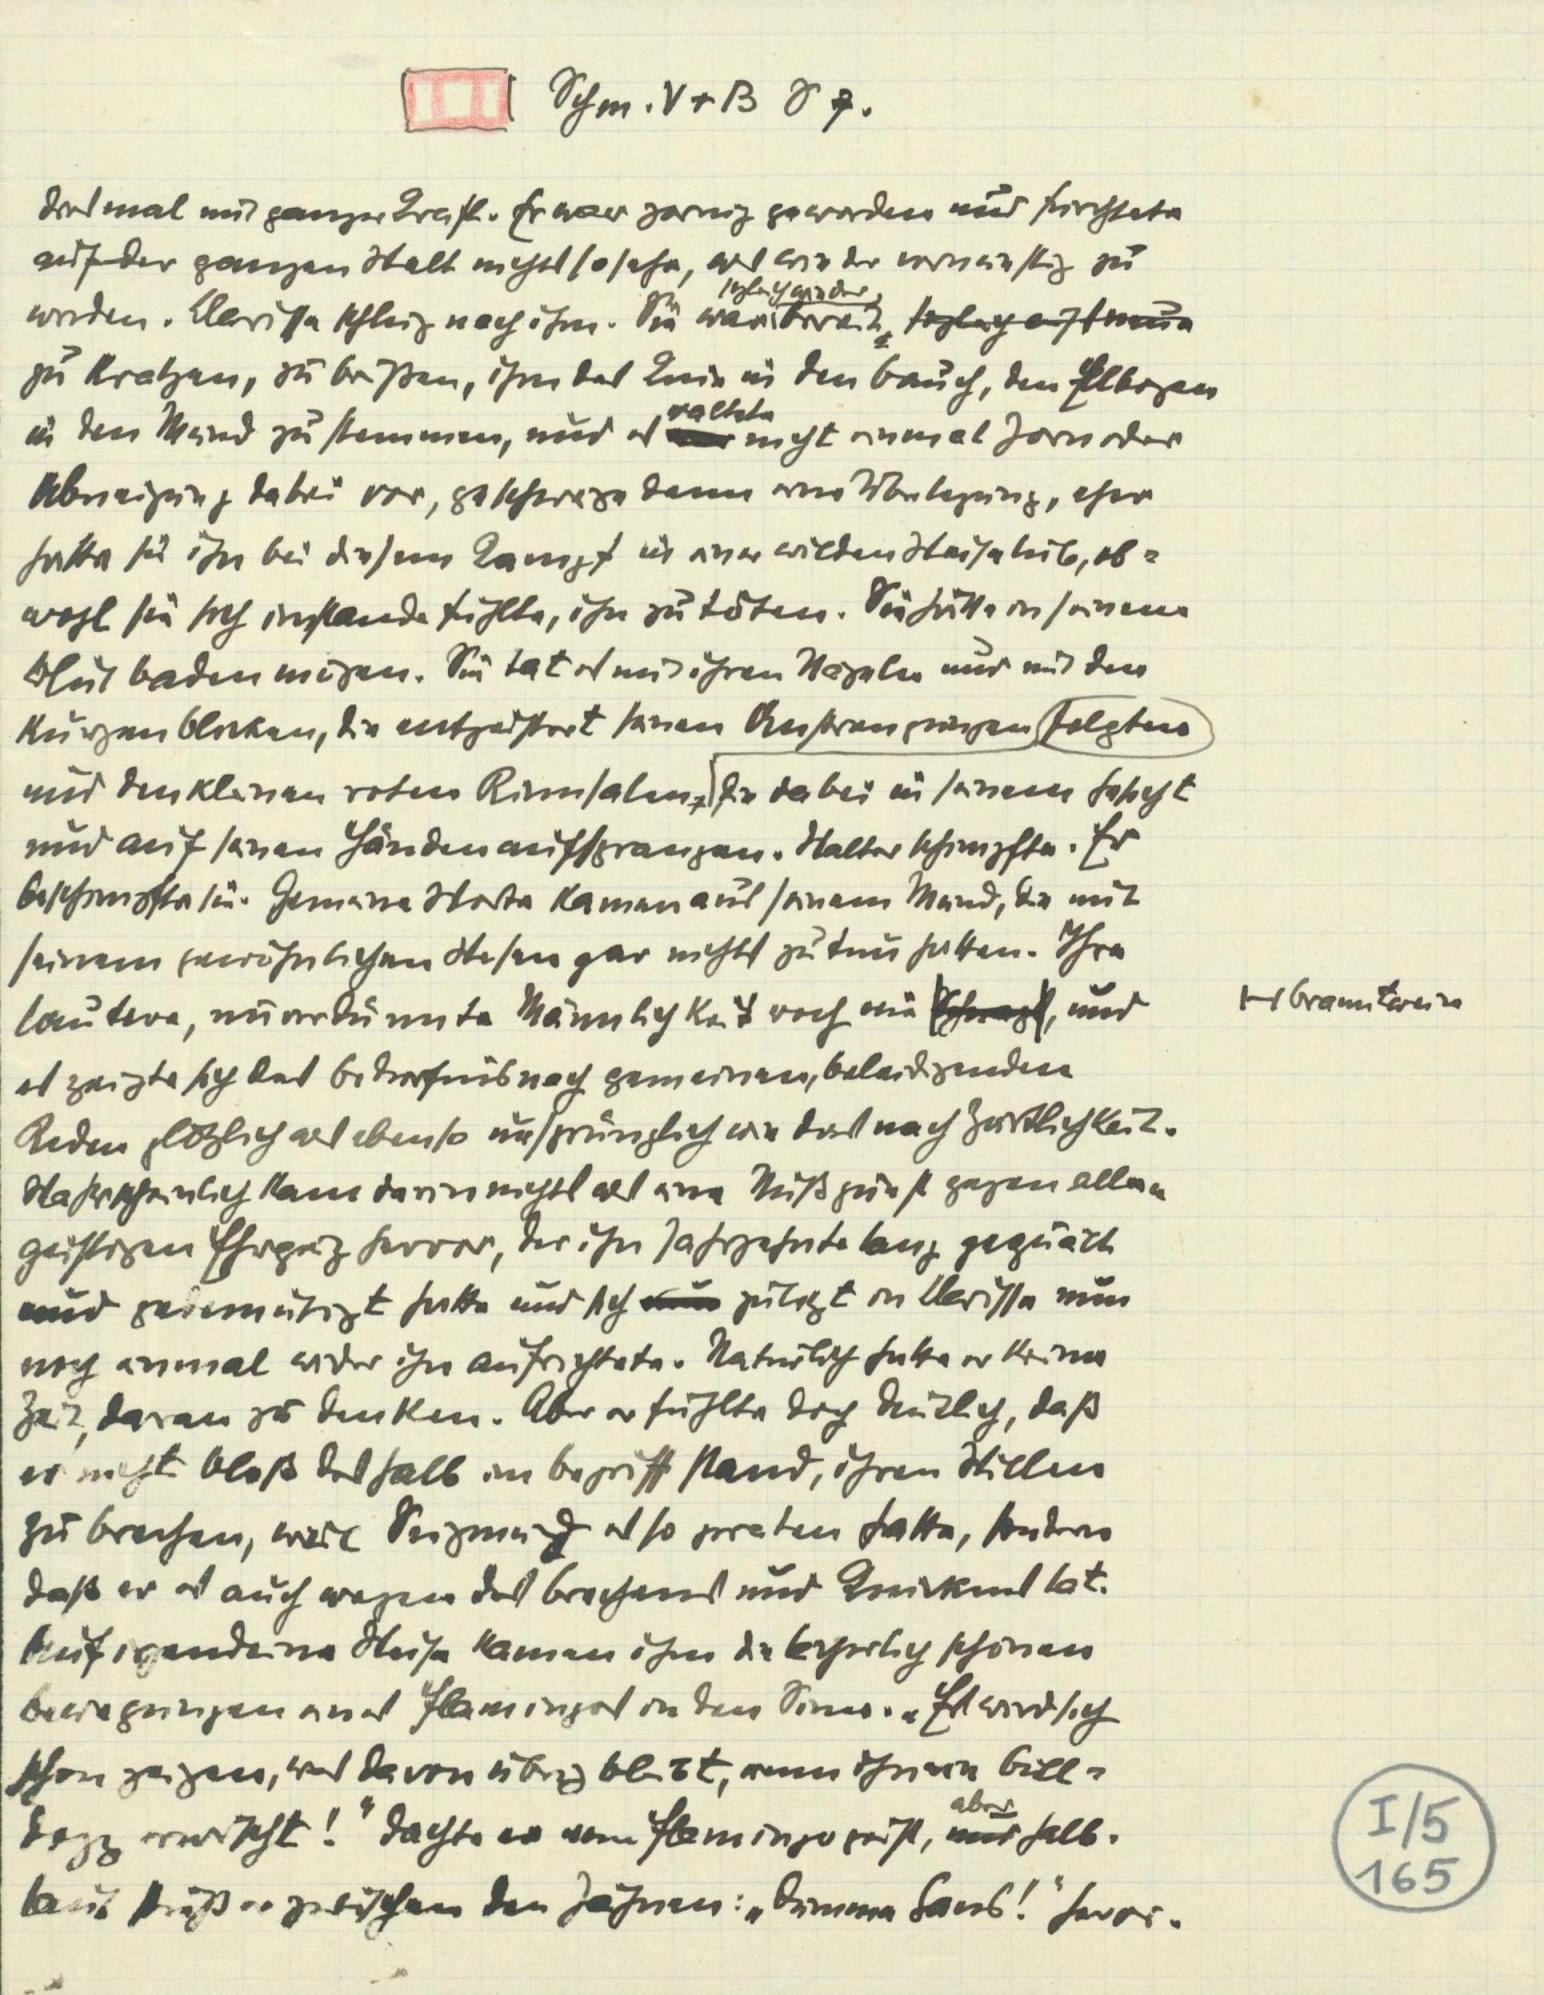 Schm. V + B S 7.
diesmal mit ganzer Kraft. Er war zornig geworden und fürchtete
auf der ganzen Welt nichts so sehr, als wieder vernünftig zu
werden. Clarisse schlug nach ihm. Sie war sogleich wieder bereit, sogleich aufs neue
zu kratzen, zu beißen, ihm das Knie in den Bauch, den Ellbogen
in den Mund zu stemmen, und es waltete nicht einmal Zorn oder
Abneigung dabei vor, geschweige denn eine Überlegung, eher
hatte sie ihn bei diesem Kampf in einer wilden Weise lieb, ob=
wohl sie sich imstande fühlte, ihn zu töten. Sie hätte in seinem
Blut baden mögen. Sie tat es mit ihren Nägeln und mit den
kurzen Blicken, die entgeistert seinen Anstrengungen folgten
und den kleinen roten Rinnsalen, die dabei in seinem Gesicht
und auf seinen Händen aufsprangen. Walter schimpfte. Er
beschimpfte sie. Gemeine Worte kamen aus seinem Mund, die mit
seinem gewöhnlichen Wesen gar nichts zu tun hatten. Ihre
lautere, unverdünnte Männlichkeit roch wie Schnaps, und
⊢ Branntwein
es zeigte sich das Bedürfnis nach gemeinen, beleidigenden
Reden plötzlich als ebenso ursprünglich wie das nach Zärtlichkeit.
Wahrscheinlich kam darin nichts als eine Mißgunst gegen allen
geistigen Ehrgeiz hervor, der ihn jahrzehntelang gequält
und gedemütigt hatte und sich nun zuletzt in Clarisse nun
noch einmal wider ihn aufrichtete. Natürlich hatte er keine
Zeit, daran zu denken. Aber er fühlte doch deutlich, daß
er nicht bloß deshalb im Begriff stand, ihren Willen
zu brechen, weil Siegmund es so geraten hatte, sondern
daß er es auch wegen des Brechens und Knickens tat.
Auf irgendeine Weise kamen ihm die lächerlich schönen
Bewegungen eines Flamingos in den Sinn. „Es wird sich
schon zeigen, was davon übrig bleibt, wenn ihn ein Bull=
dogg erwischt!" dachte er vom Flamingogeist, und aber halb=
laut stieß er zwischen den Zähnen: „Dumme Gans!" hervor.
I/5
165